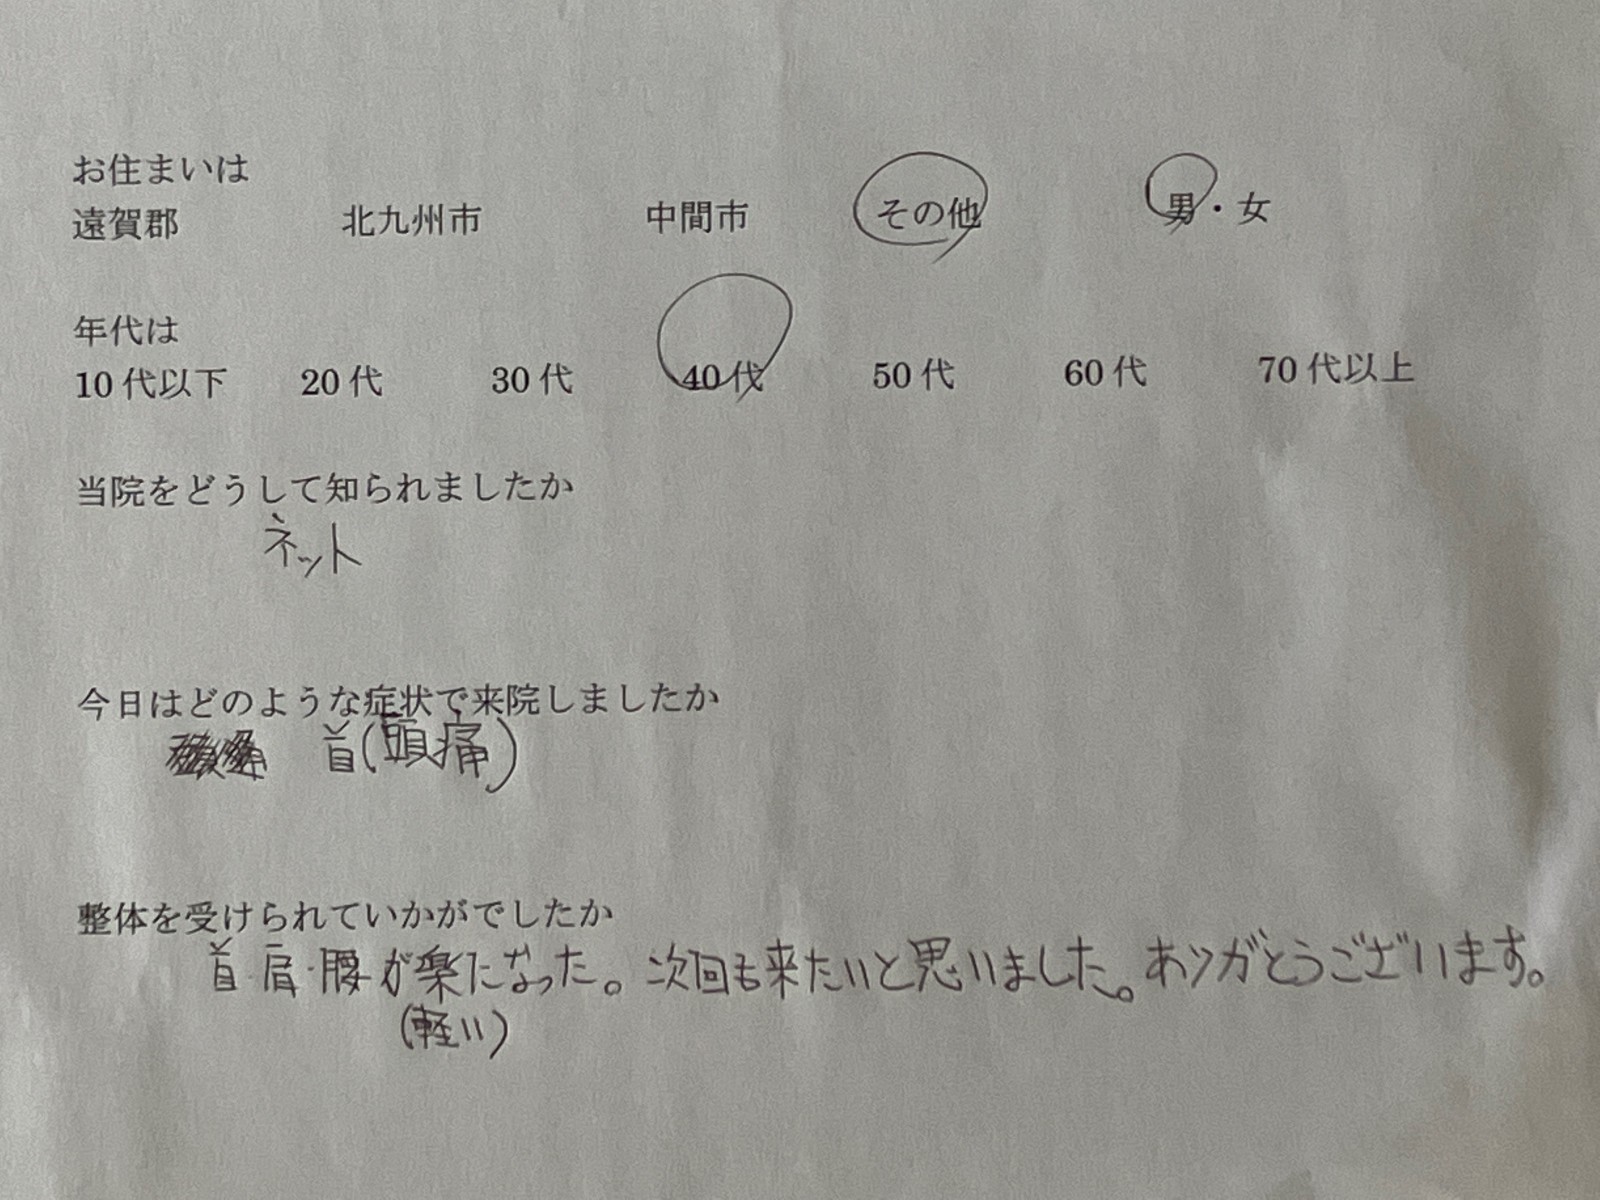 お住まいは
遠賀郡 北九州市 中間市 その他 男・女
年代は
10代以下 20代 30代 40代 50代 60代 70代以上
当院をどうして知られましたか
ネット
今日はどのような症状で来院しましたか
首(頭痛)
整体を受けられていかがでしたか
首・肩・腰が楽になった。次回も来たいと思いました。ありがとうございます。
(軽い)